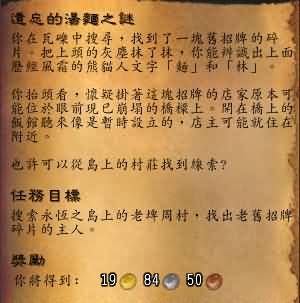 遺忘的湯麵之謎
你在瓦礫中搜尋，找到了一塊舊招牌的碎
片。把上頭的灰塵抹了抹，你能辨識出上面
歷經風霜的熊貓人文字「麵」和「林」。
你抬頭看，懷疑掛著這塊招牌的店家原本可
能位於眼前現已崩塌的橋樑上。開在橋上的
飯館聽來像是暫時設立的，店主可能就住在
附近。
也許可以從島上的村莊找到線索?
任務目標
搜索永恆之島上的老埤周村，找出老舊招牌
碎片的主人。
獎勵
你將得到: 19 84 50